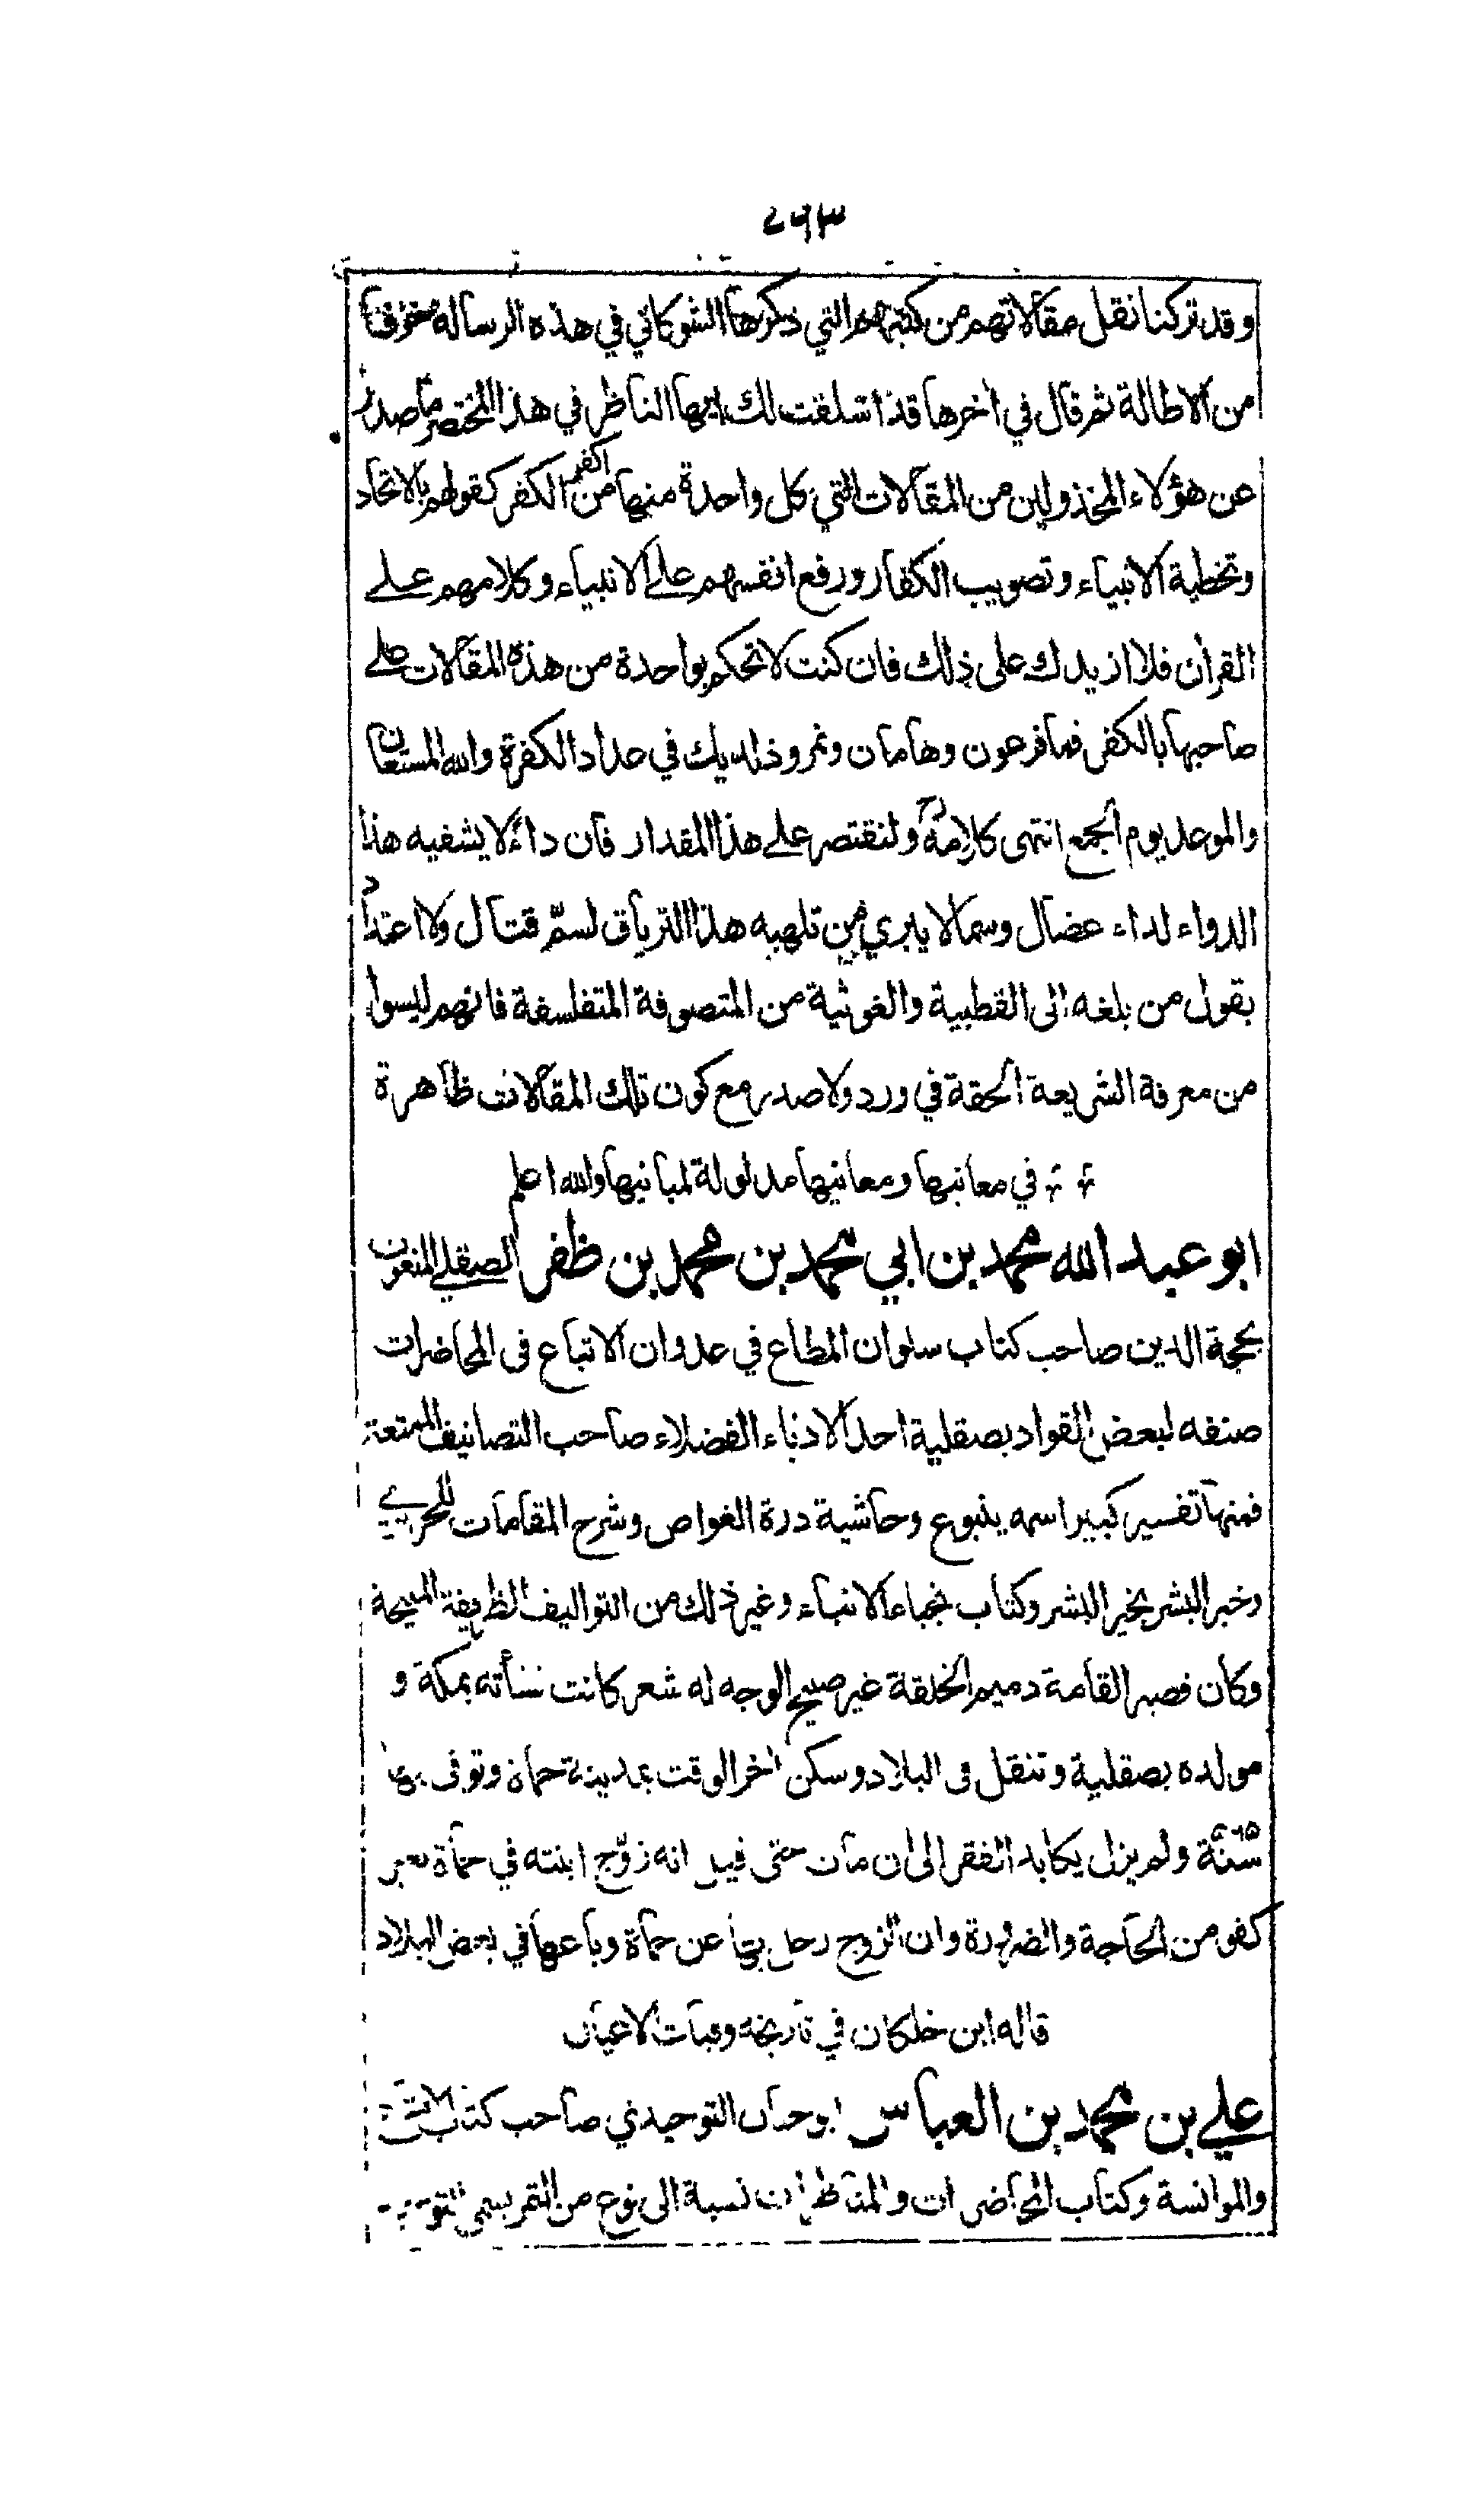 ٧٩٣
وقد تركنا نقل مقالاتهم من كتبهم التي ذكرها الشوكاني في هذه الرسالة خوفا
من الاطالة ثم قال في اخرها قد اسلفت لك ايها الناظر في هذا المختصر ما صدر
عن هؤلاء المخذولين من المقالات التي كل واحدة منها من اكفر الكفر كقولهم بالاتحاد
وتخطية الانبياء وتصويب الكفار ورفع انفسهم على الانبياء وكلامهم على
القرأن فلا ازيدك على ذلك فان كنت لا تحكم بواحدة من هذه المقالات على
صاحبها بالكفر فما فرعون وهامان ونمروذ لديك في عداد الكفرة والله المستعان
والموعد يوم الجمع انتهى كلامه رح ولنقتصر على هذا المقدار فان داءً لا يشفيه هذا
الدواء لداء عضال وسما لا يبري من تلهبه هذا الترياق لسمّ قتال ولا اعتداد
بقول من بلغه الى القطبية والغوثية من المتصوفة المتفلسفة فانهم ليسوا
من معرفة الشريعة الحقة في ورد ولا صدر مع كون تلك المقالات ظاهرة
في معانيها ومعانيها مدلولة لمبانيها والله اعلم
ابو عبد الله محمد بن ابي محمد بن محمد بن ظفر الصقلي المنعوت
بحجة الدين صاحب كتاب سلوان المطاع في عدوان الاتباع فى المحاضرات
صنفه لبعض القواد بصقلية احد الادباء الفضلاء صاحب التصانيف الممتعة
فمنها تفسير كبير اسمه ينبوع وحاشية درة الغواص وشرح المقامات للحريري
وخبر البشر بخير البشر وكتاب نجباء الانباء وغير ذلك من التواليف الظريفة المليحة
وكان قصير القامة دميم الخلقة غير صبيح الوجه له شعر كانت نشأته بمكة و
مولده بصقلية وتنقل فى البلاد وسكن اخر الوقت بمدينة حماة وتوفى بها
سنة ولم يزل يكابد الفقر الى ان مات حتى قيل انه زوّج ابنته في حماة بغير
كفو من الحاجة والضرورة وان الزوج رحل بها عن حماة وباعها في بعض البلاد
قاله ابن خلكان في تاريخه وفيات الاعيان
علي بن محمد بن العباس ابو حيان التوحيدي صاحب كتاب
والموانسة وكتاب المحاضرات والمناظرات نسبة الى نوع من التمر يسمى